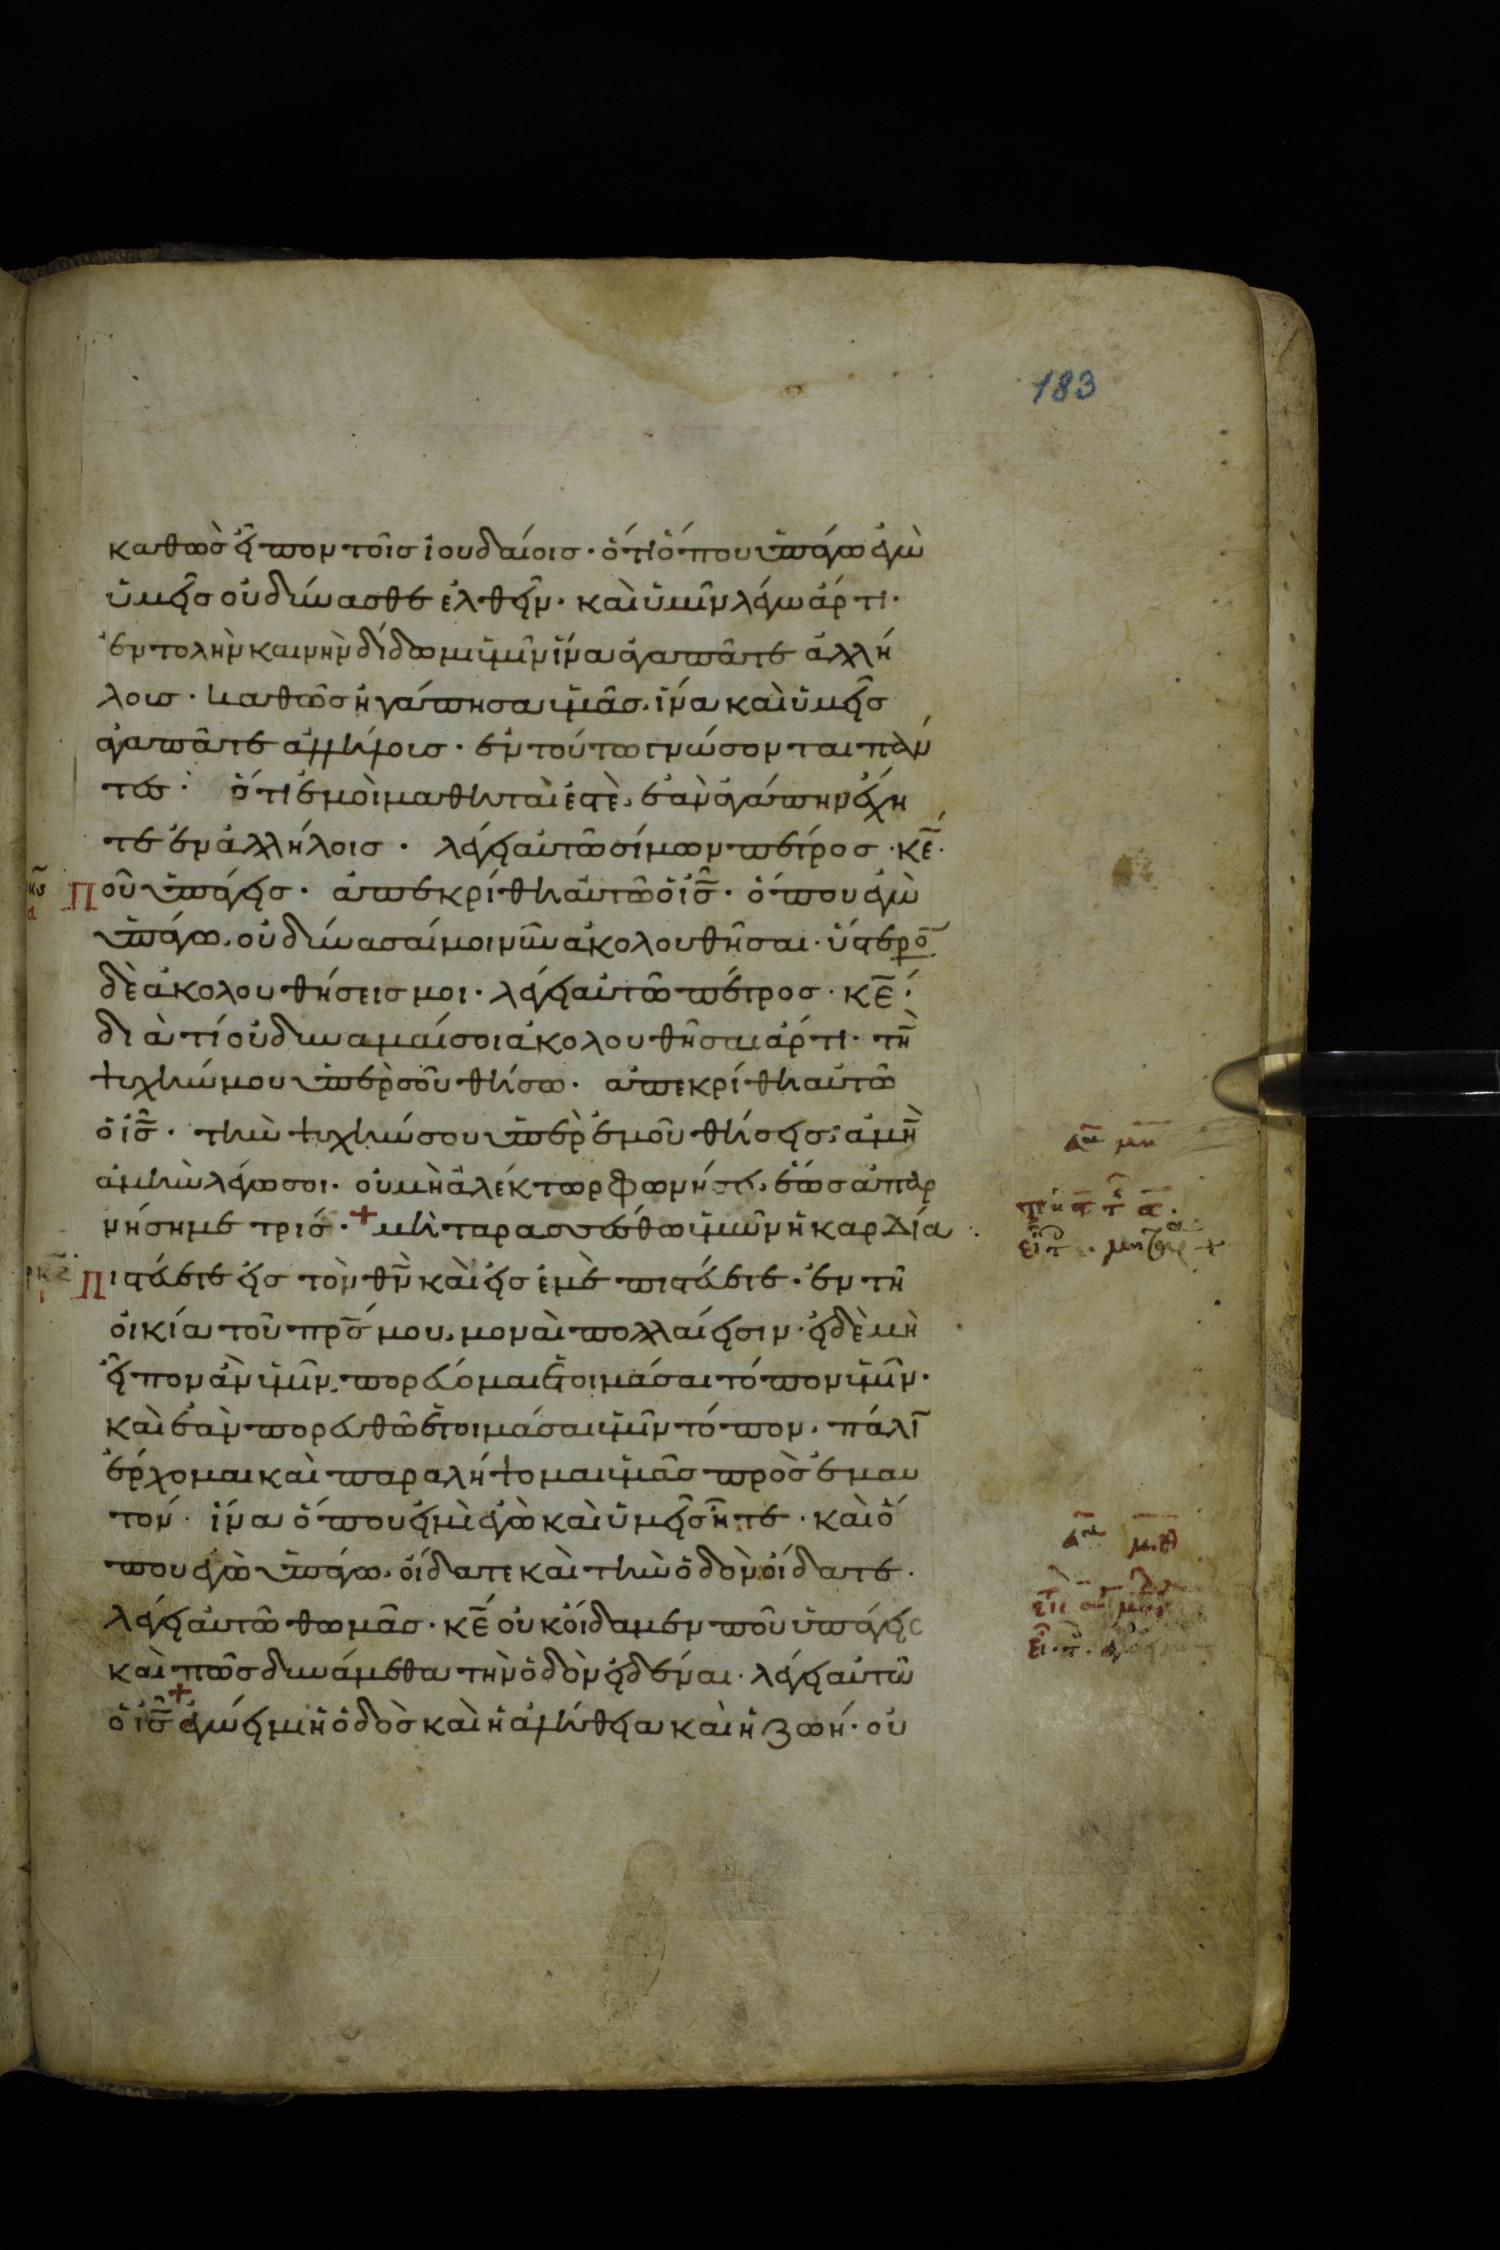 183
καθὼσ εἶπον τοῖσ ἰουδαίοισ · ὅτι ὅπου ὑπάγω ἐγὼ
ὑμεῖσ οὐ δύνασθε ἐλθεῖν · καὶ ὑμῖν λέγω ἄρτι ·
ἐντολὴν καινὴν δίδωμι ὑμῖν ἵνα ἀγαπᾶτε ἀλλή
λουσ · καθῶσ ἠγάπησα ὑμᾶσ, ἵνα καὶ ὑμεῖσ
ἀγαπᾶτε ἀλλήλουσ · ἐν τούτω γνώσονται πάν
τεσ · ὅτι ἐμοὶ μαθηταὶ ἐστὲ, ἐὰν ἀγάπην ἔχη
τε ἐν ἀλλήλοισ · λέγει αὐτῶ σίμων πέτροσ · κ̅ε̅ ·
Ποῦ ὑπάγεισ · ἀπεκρίθη αὐτῶ ὁ ι̅σ̅ · ὅπου ἐγὼ
ὑπάγω, οὐ δύνασαί μοι νῦν ἀκολουθῆσαι · ὕστερο̅
δὲ ἀκολουθήσεισ μοι · λέγει αὐτῶ πέτροσ · κ̅ε̅ ·
διὰ τί οὐ δύναμαί σοι ἀκολουθῆσαι ἄρτι · τὴ̅
ψυχήν μου ὑπὲρ σοῦ θήσω · ἀπεκρίθη αὐτῶ
ὁ ι̅σ̅ · τὴν ψυχήν σου ὑπὲρ ἐμοῦ θήσεισ; ἀμὴ̅
ἀμὴν λέγω σοι · οὐ μὴ ἀλέκτωρ φωνήσει, ἕωσ ἀπαρ
νήση με τρισ · + μὴ ταρασσέσθω ὑμῶν ἡ καρδία
Πιστεύετε εἰσ τὸν θ̅ν̅ καὶ εἰσ ἐμὲ πιστεύετε · ἐν τῆ
οἰκία τοῦ π̅ρ̅σ̅ μου, μοναὶ πολλαί εἰσιν · εἰ δὲ μὴ
εἶπον ἂν ὑμῖν, πορεύομαι ἑτοιμάσαι τόπον ὑμῖν ·
καὶ ἐὰν πορευθῶ ἑτοιμάσαι ὑμῖν τόπον, πάλι̅
ἔρχομαι καὶ παραλήψομαι ὑμᾶσ πρὸσ ἐμαυ
τόν · ἵνα ὅπου εἰμὶ ἐγὼ καὶ ὑμεῖσ ἦτε · καὶ ὅ
που ἐγὼ ὑπάγω, οἴδατε καὶ τὴν ὁδὸν οἴδατε ·
λέγει αὐτῶ θωμᾶσ · κ̅ε̅ οὐκ οἴδαμεν ποῦ ὑπάγεισ
καὶ πῶσ δυνάμεθα τὴν ὁδὸν εἰδέναι · λέγει αὐτῶ
ὁ ι̅σ̅ + ἐγώ εἰμι ἡ ὁδὸσ καὶ ἡ ἀλήθεια καὶ ἡ ζωή · οὐ